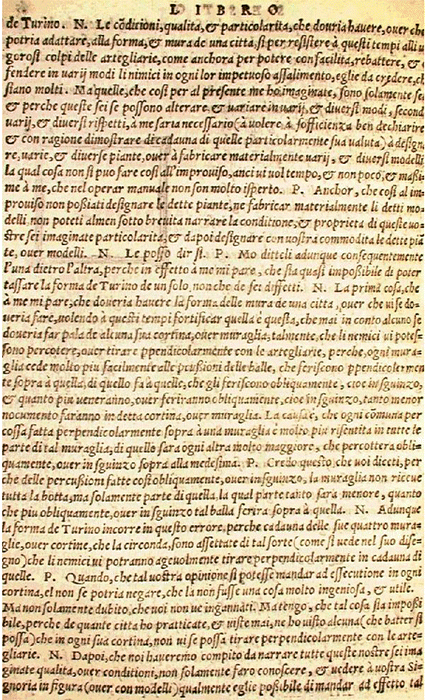 LIBRO
de Turino. N. Le cōditioni, qualita, & particolarita, che douria hauere, ouer che
potria adattare, alla forma, & mura de una citta, si per resistere à questi tempi alli ui
gorosi colpi delle artegliarie, come anchora per potere con facilita, rebattere, & of
fendere in uarij modi li nimici in ogni lor impetuoso assalimento, eglie da credere, che
siano molti. Ma quelle, che cosi per al presente me ho imaginate, sono solamente sei
& perche queste sei se possono alterare & uariare in uarij, & diuersi modi, secondo
uarij, & diuersi rispetti, à me saria necessario (à uolere à sofficienza ben dechiarire
& con ragione dimostrare di cadauna di quelle particolarmente sua ualuta) à designa
re, uarie, & diuerse piante, ouer à fabricare materialmente uarij, & diuersi modelli
la qual cosa non si puo fare cosi all'improuiso, anci ui uol tempo, & non poco, & massi
me à me, che nel operar manuale non son molto isperto. P. Anchor, che cosi al im
prouiso non possiati designare le dette piante, ne fabricar materialmente li detti mo
delli non poteti almen sotto breuita narrare la conditione, & proprieta di queste uo
stre sei imaginate particolarita, & dapoi designare con uostra commodita le dette piā
te, ouer modelli. N. Le posso dir si. P. Mo ditteli adunque consequentemente
l'una dietro l'altra, perche in effetto à me mi pare, che sia quasi impossibile di poter
tassare la forma de Turino de un solo, non che de sei diffetti. N. La prima cosa, che
à me mi pare, che doueria hauere la forma delle mura de una citta, ouer che ui se do=
ueria fare, uolendo à questi tempi fortificar quella è questa, che mai in conto alcuno se
doueria far pala de alcuna sua cortina, ouer muraglia, talmente, che li nemici ui potes=
sono percotere, ouer tirare ppendicolarmente con le artegliarie, perche, ogni mura=
glia cede molto piu facilmente alle pcussioni delle balle, che feriscono ppendicolarmen
te sopra à quella, di quello fa à quelle, che gli feriscono obliquamente, cioe in sguinzo,
& quanto piu ueneranno, ouer feriranno obliquamente, cioe in sguinzo, tanto menor
nocumento faranno in detta cortina, ouer muraglia. La causa è, che ogni cōmuna per
cossa fatta perpendicolarmente sopra à una muraglia è molto piu risentita in tutte le
parte di tal muraglia, di quello sara ogni altra molto maggiore, che percottera obli=
quamente, ouer in sguinzo sopra alla medesima. P. Credo questo, che uoi diceti, per
che delle percussioni fatte cosi obliquamente, ouer in sguinzo, la muraglia non riceue
tutta la botta, ma solamente parte di quella, la qual parte tanto sara menore, quanto
che piu obliquamente, ouer in sguinzo tal balla ferira sopra à quella. N. Adunque
la forma de Turino incorre in questo errore, perche cadauna delle sue quattro mura=
glie, ouer cortine, che la circonda, sono assettate di tal sorte (come si uede nel suo dise=
gno) che li nemici ui potranno ageuolmente tirare perpendicolarmente in cadauna di
quelle. P. Quando, che tal uostra opinione si potesse mandar ad essecutione in ogni
cortina, el non se potria negare, che la non fusse una cosa molto ingeniosa, & utile.
Ma non solamente dubito, che uoi non ue ingannati. Ma tengo, che tal cosa sia impossi
bile, perche de quante citta ho pratticate, & uiste mai, ne ho uisto alcuna (che batter si
possa) che in ogni sua cortina, non ui se possa tirare perpendicolarmente con le arte=
gliarie. N. Dapoi, che noi haueremo compito da narrare tutte queste nostre sei ima
ginate qualita, ouer conditioni, non solamente faro conoscere, & uedere à uostra Si=
gnoria in figura (ouer con modelli) qualmente eglie possibile di mandar ad effetto tal